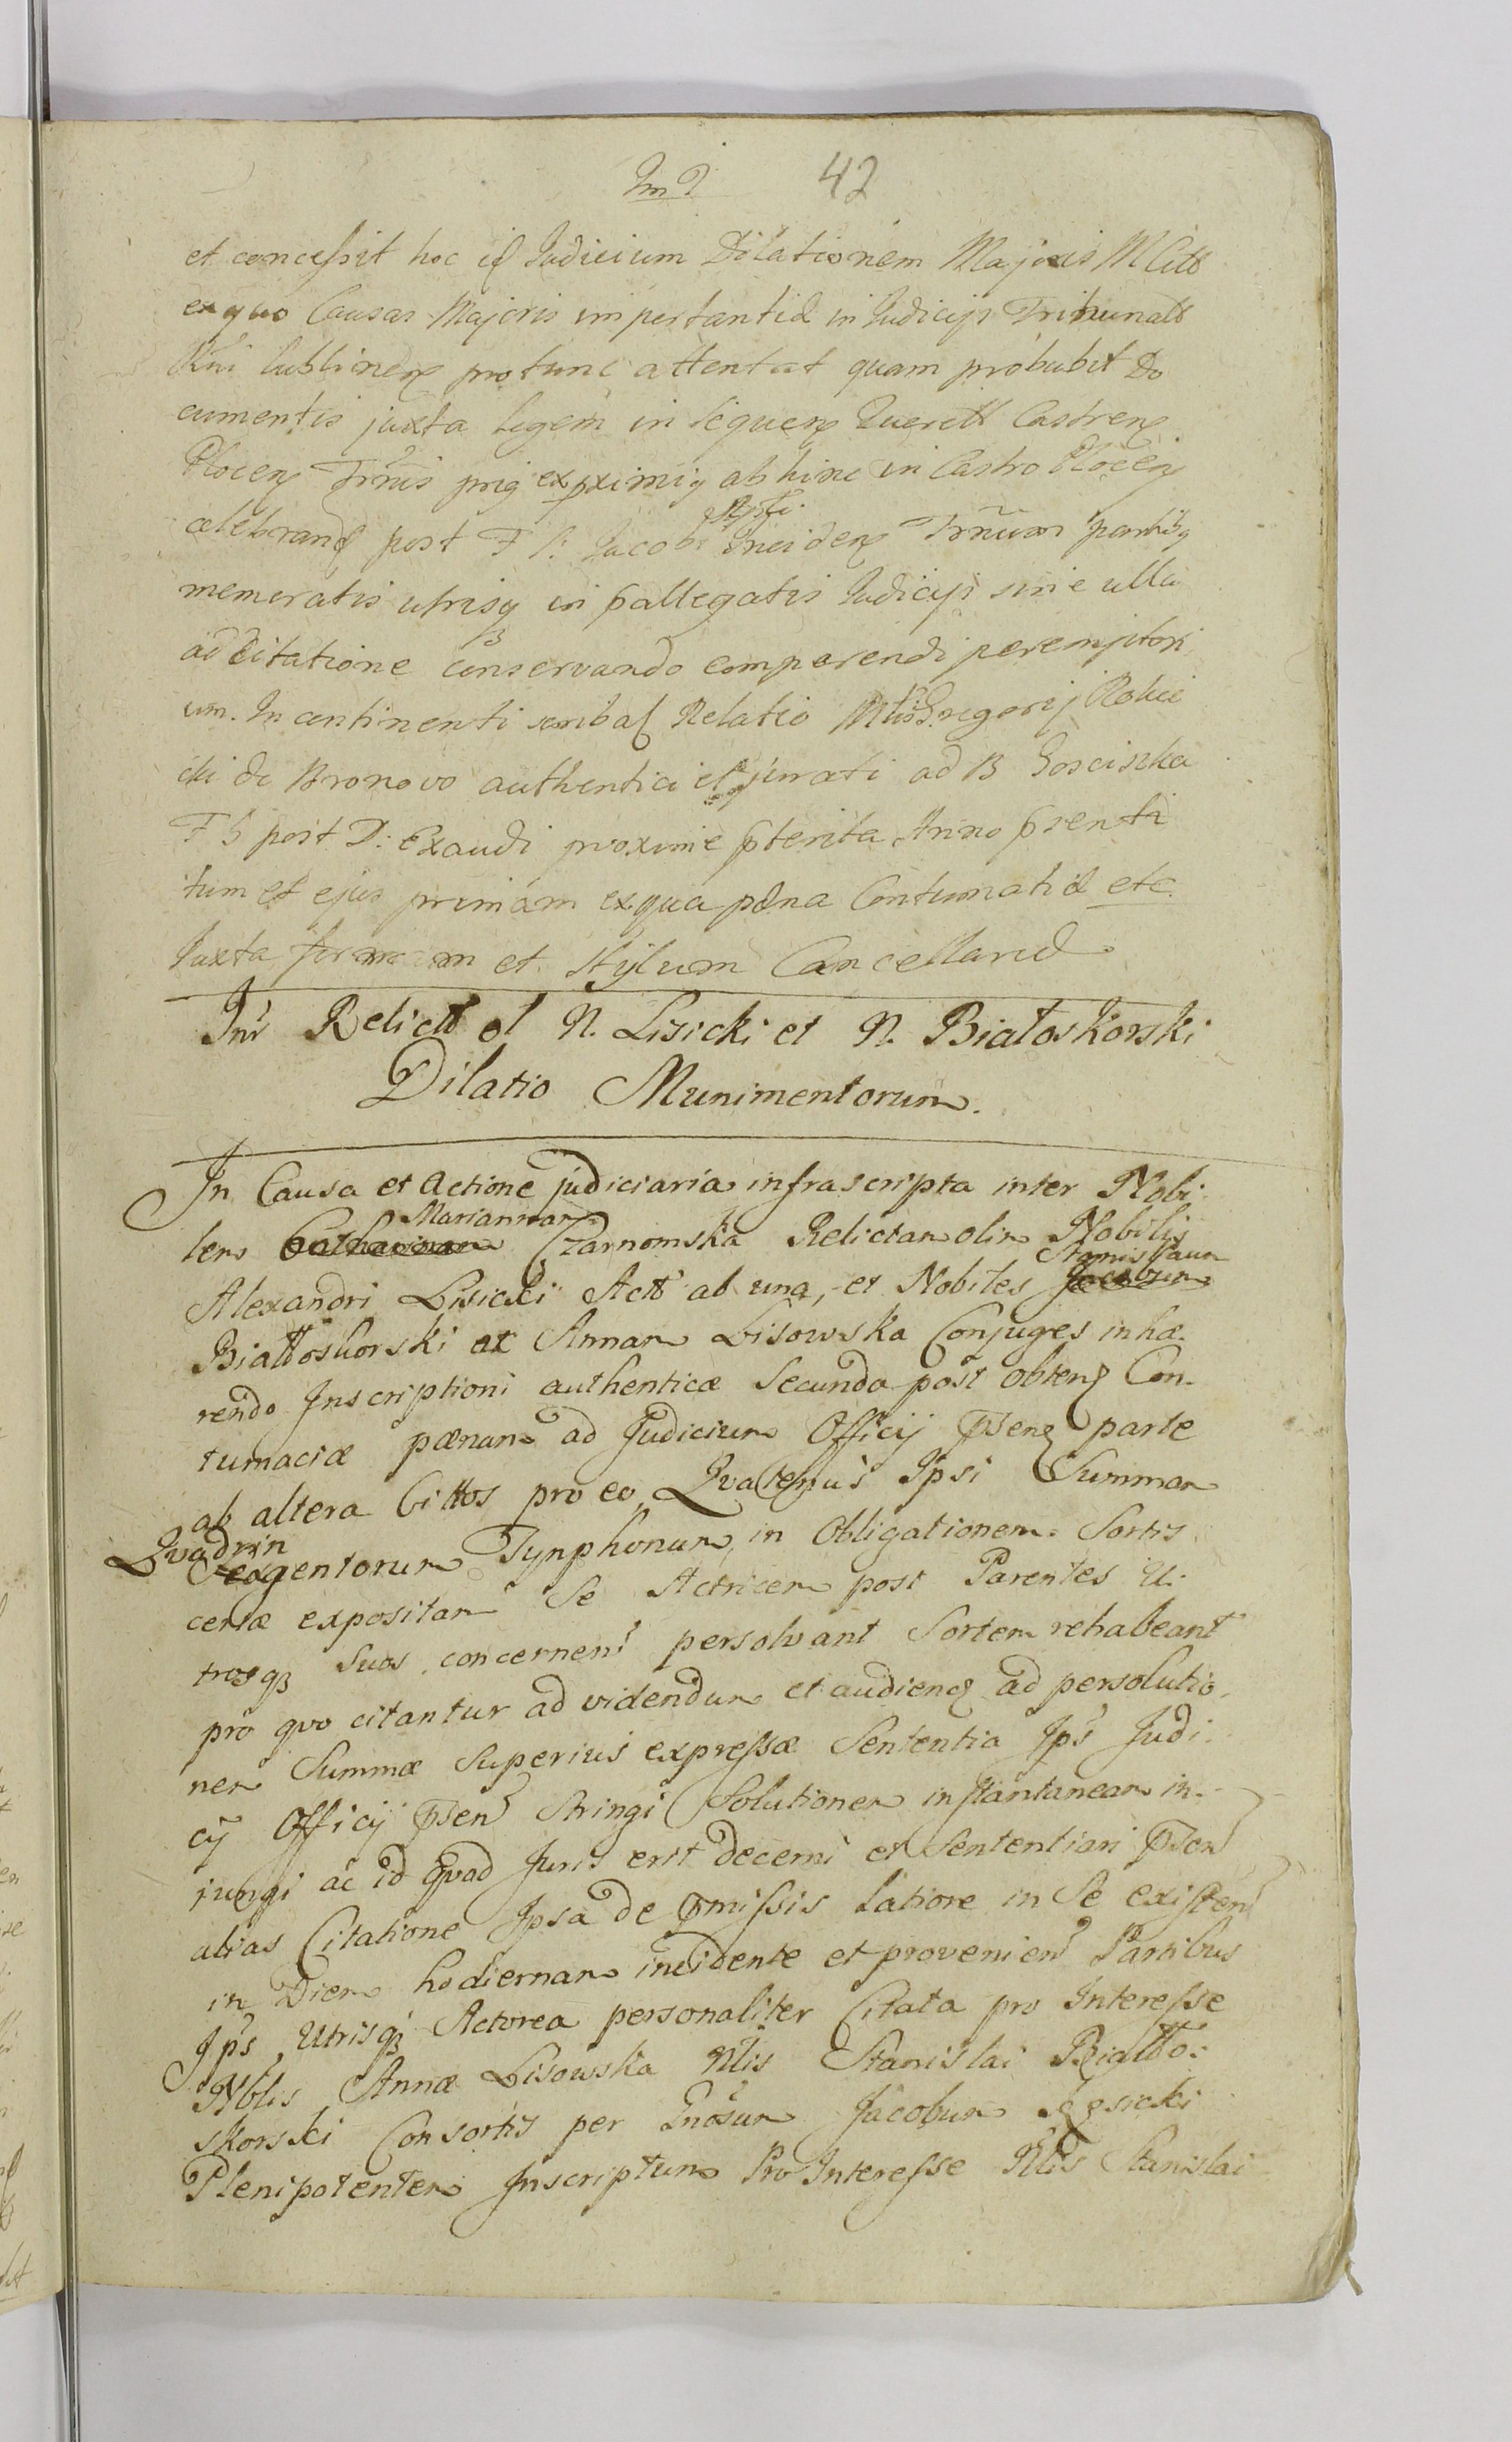 42
et concessit hoc id Judicium Dilationem Majoris M Citt
ex quo Causas Majoris importantiæ in Judicijs Tribunalb
Rni Lublinen protunc attentat quam probabit Do
cumentis juxta Legem in sequen Querell Castren
Plocen Trnis prius expximius abhinc in Castro Plocen
celebrand post F S: Jacobi Apli Inciden Trnum partibq
memoratis utrisq in pallegatis Judicijs sine ulla
adcitatione conservando comparendi peremptori
um. In continenti scribat Relatio Mtis Gregorij
cki de Bronovo authentici et jurati ad B Gosciszka
F 5 post D: Exaudi proxime pterita Anno prenti
tum et ejus primam ex qua pæna Contumatiæ etc
Juxta formam et Stylum Cancellariæ
Intr Relictt ol N. Lisicki et N. Białoskorski
Dilatio Munimentorum.
In Causa et Actione judiciaria infrascripta inter Nobi
lem Catharinam Mariannam Czarnomska Relictam olim Nobilis
Alexandri Lisicki Act ab una, et Nobiles Jacobum Stanislaum
Białłoskorski et Annam Lisowska Conjuges inhæ
rendo Inscriptioni authenticæ Secundo post obten Con-
tumaciæ pænam ad Judicium Officij psen parte
ab altera Cittos pro eo, Qvatenus Ipsi Summam
Qvadrin Sexgentorum Tynphonum, in Obligationem Sortis
certæ expositam Se Actricem post Parentes U-
trosq3 Suos concernent persolvant Sortem rehabeant
pro qvo citantur ad videndum et audiend ad persolutio
nem Summæ Superius expressæ Sententia Ips Judi-
cij Officij psen Stringi Solutionem instantaneam in-
jungi ac id qvod Juris erit decerni et Sententiari psen
alias Citatione Ipsa de pmissis Latiore in Se existen
in Diem hodiernam incidente et provenien Partibus
Ips Utrisq3 Actorea personaliter Citata pro Interesse
Nblis Annæ Lisowska Nlis Stanislai Białło-
skorski Consortis per Gnosum Jacobum
Plenipotentem Inscriptum Pro Interesse Nlis Stanislai